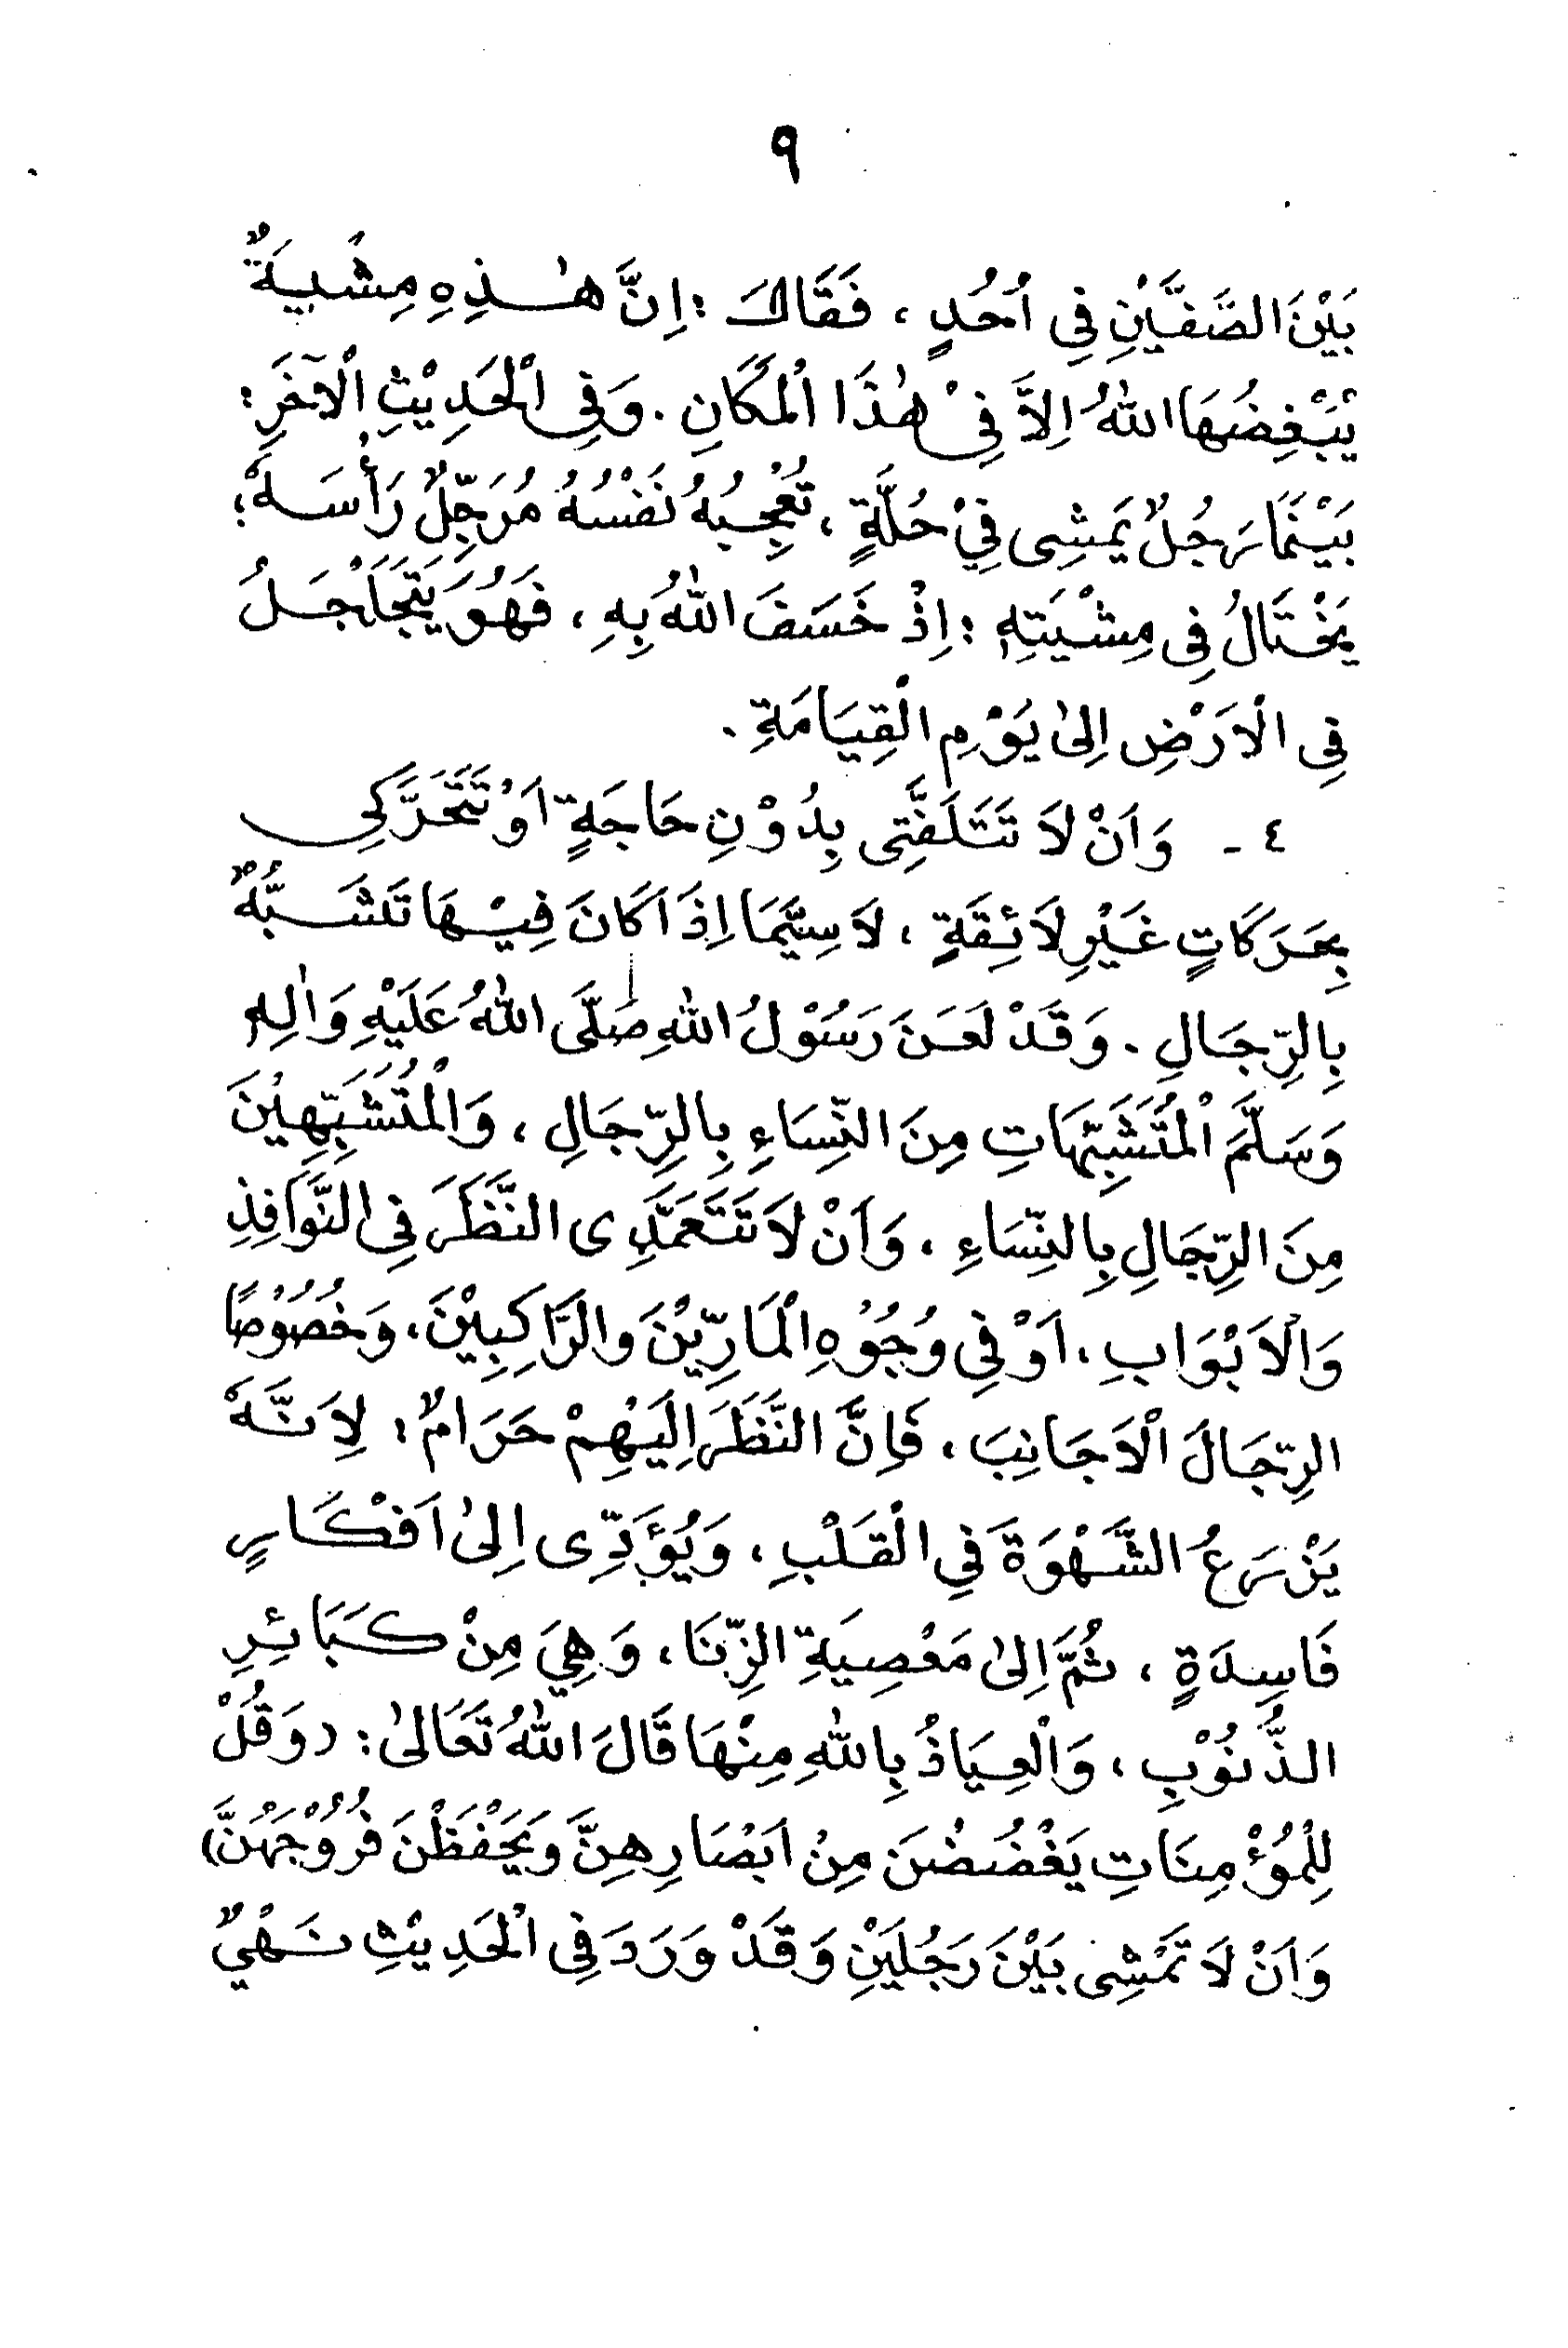 ٩
بَيْنَ الصَّفَّيْنِ فِى اُحُدٍ ، فَقَالَ : اِنَّ هٰذِهِ مِشْيَةٌ
يُبْغِضُهَا اللهُ اِلاَّ فِىْ هٰذَا الْمَكَانِ . وَفِى الْحَدِيْثِ الْآخَرِ :
بَيْنَمَا رَجُلٌ يَمْشِى فِيْ حُلَّةٍ ، تُعْجِبُهُ نَفْسُهُ مُرَجِّلٌ رَأْسَهُ ؛
يَخْتَالُ فِى مِشْيَتِهِ ؛ اِذْ خَسَفَ اللهُ بِهِ ، فَهُوَ يَتَجَلْجَلُ
فِى الْاَرْضِ اِلىٰ يَوْمِ الْقِيَامَةِ .
٤ - وَاَنْ لاَ تَتَلَفَّتِى بِدُوْنِ حَاجَةٍ اَوْ تَتَحَرَّكِى
بِحَرَكَاتٍ غَيْرِ لاَئِقَةٍ ، لاَ سِيَّمَا اِذَا كَانَ فِيْهَا تَشَبُّهٌ
بِالرِّجَالِ . وَقَدْ لَعَنَ رَسُوْلُ اللهِ صَلَّى اللهُ عَلَيْهِ وَاٰلِهِ
وَسَلَّمَ الْمُتَشَبِّهَاتِ مِنَ النِّسَاءِ بِالرِّجَالِ ، وَالْمُتَشَبِّهِيْنَ
مِنَ الرِّجَالِ بِالنِّسَاءِ ، وَاَنْ لاَ تَتَعَمَّدِى النَّظَرَ فِى النَّوَافِذِ
وَالْاَبْوَابِ ، اَوْ فِى وُجُوْهِ الْمَارِّيْنَ وَالرَّاكِبِيْنَ ، وَخُصُوْصًا
الرِّجَالَ الْاَجَانِبَ ، فَاِنَّ النَّظَرَ اِلَيْهِمْ حَرَامٌ ؛ لِاَنَّهُ
يَزْرَعُ الشَّهْوَةَ فِي الْقَلْبِ ، وَيُؤَدِّى اِلىٰ اَفْكَارٍ
فَاسِدَةٍ ، ثُمَّ اِلىٰ مَعْصِيَةِ الزِّنَا ، وَهِيَ مِنْ كَبَائِرِ
الذُّنُوْبِ ، وَالْعِيَاذُ بِاللهِ مِنْهَا قَالَ اللهُ تَعَالىٰ : (وَقُلْ
لِلْمُؤْمِنَاتِ يَغْضُضْنَ مِنْ اَبْصَارِهِنَّ وَيَحْفَظْنَ فُرُوْجَهُنَّ)
وَاَنْ لاَ تَمْشِى بَيْنَ رَجُلَيْنِ وَقَدْ وَرَدَ فِى الْحَدِيْثِ نَهْيٌ